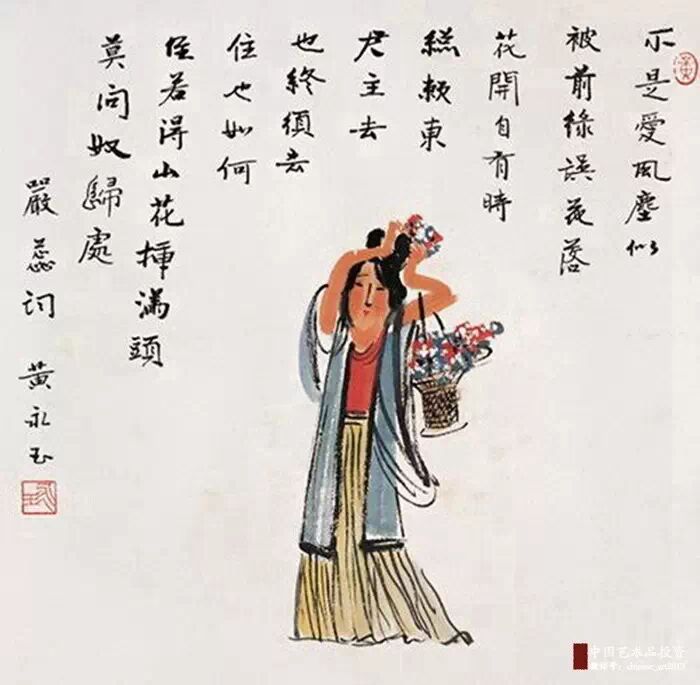 不是愛風塵似
被前緣誤花落
花開自有時
總賴東
君主去
也終須去
住也如何
住若得山花插滿頭
莫问奴歸處
嚴蕊词 黄永玉
中国艺术品投资
微信号: